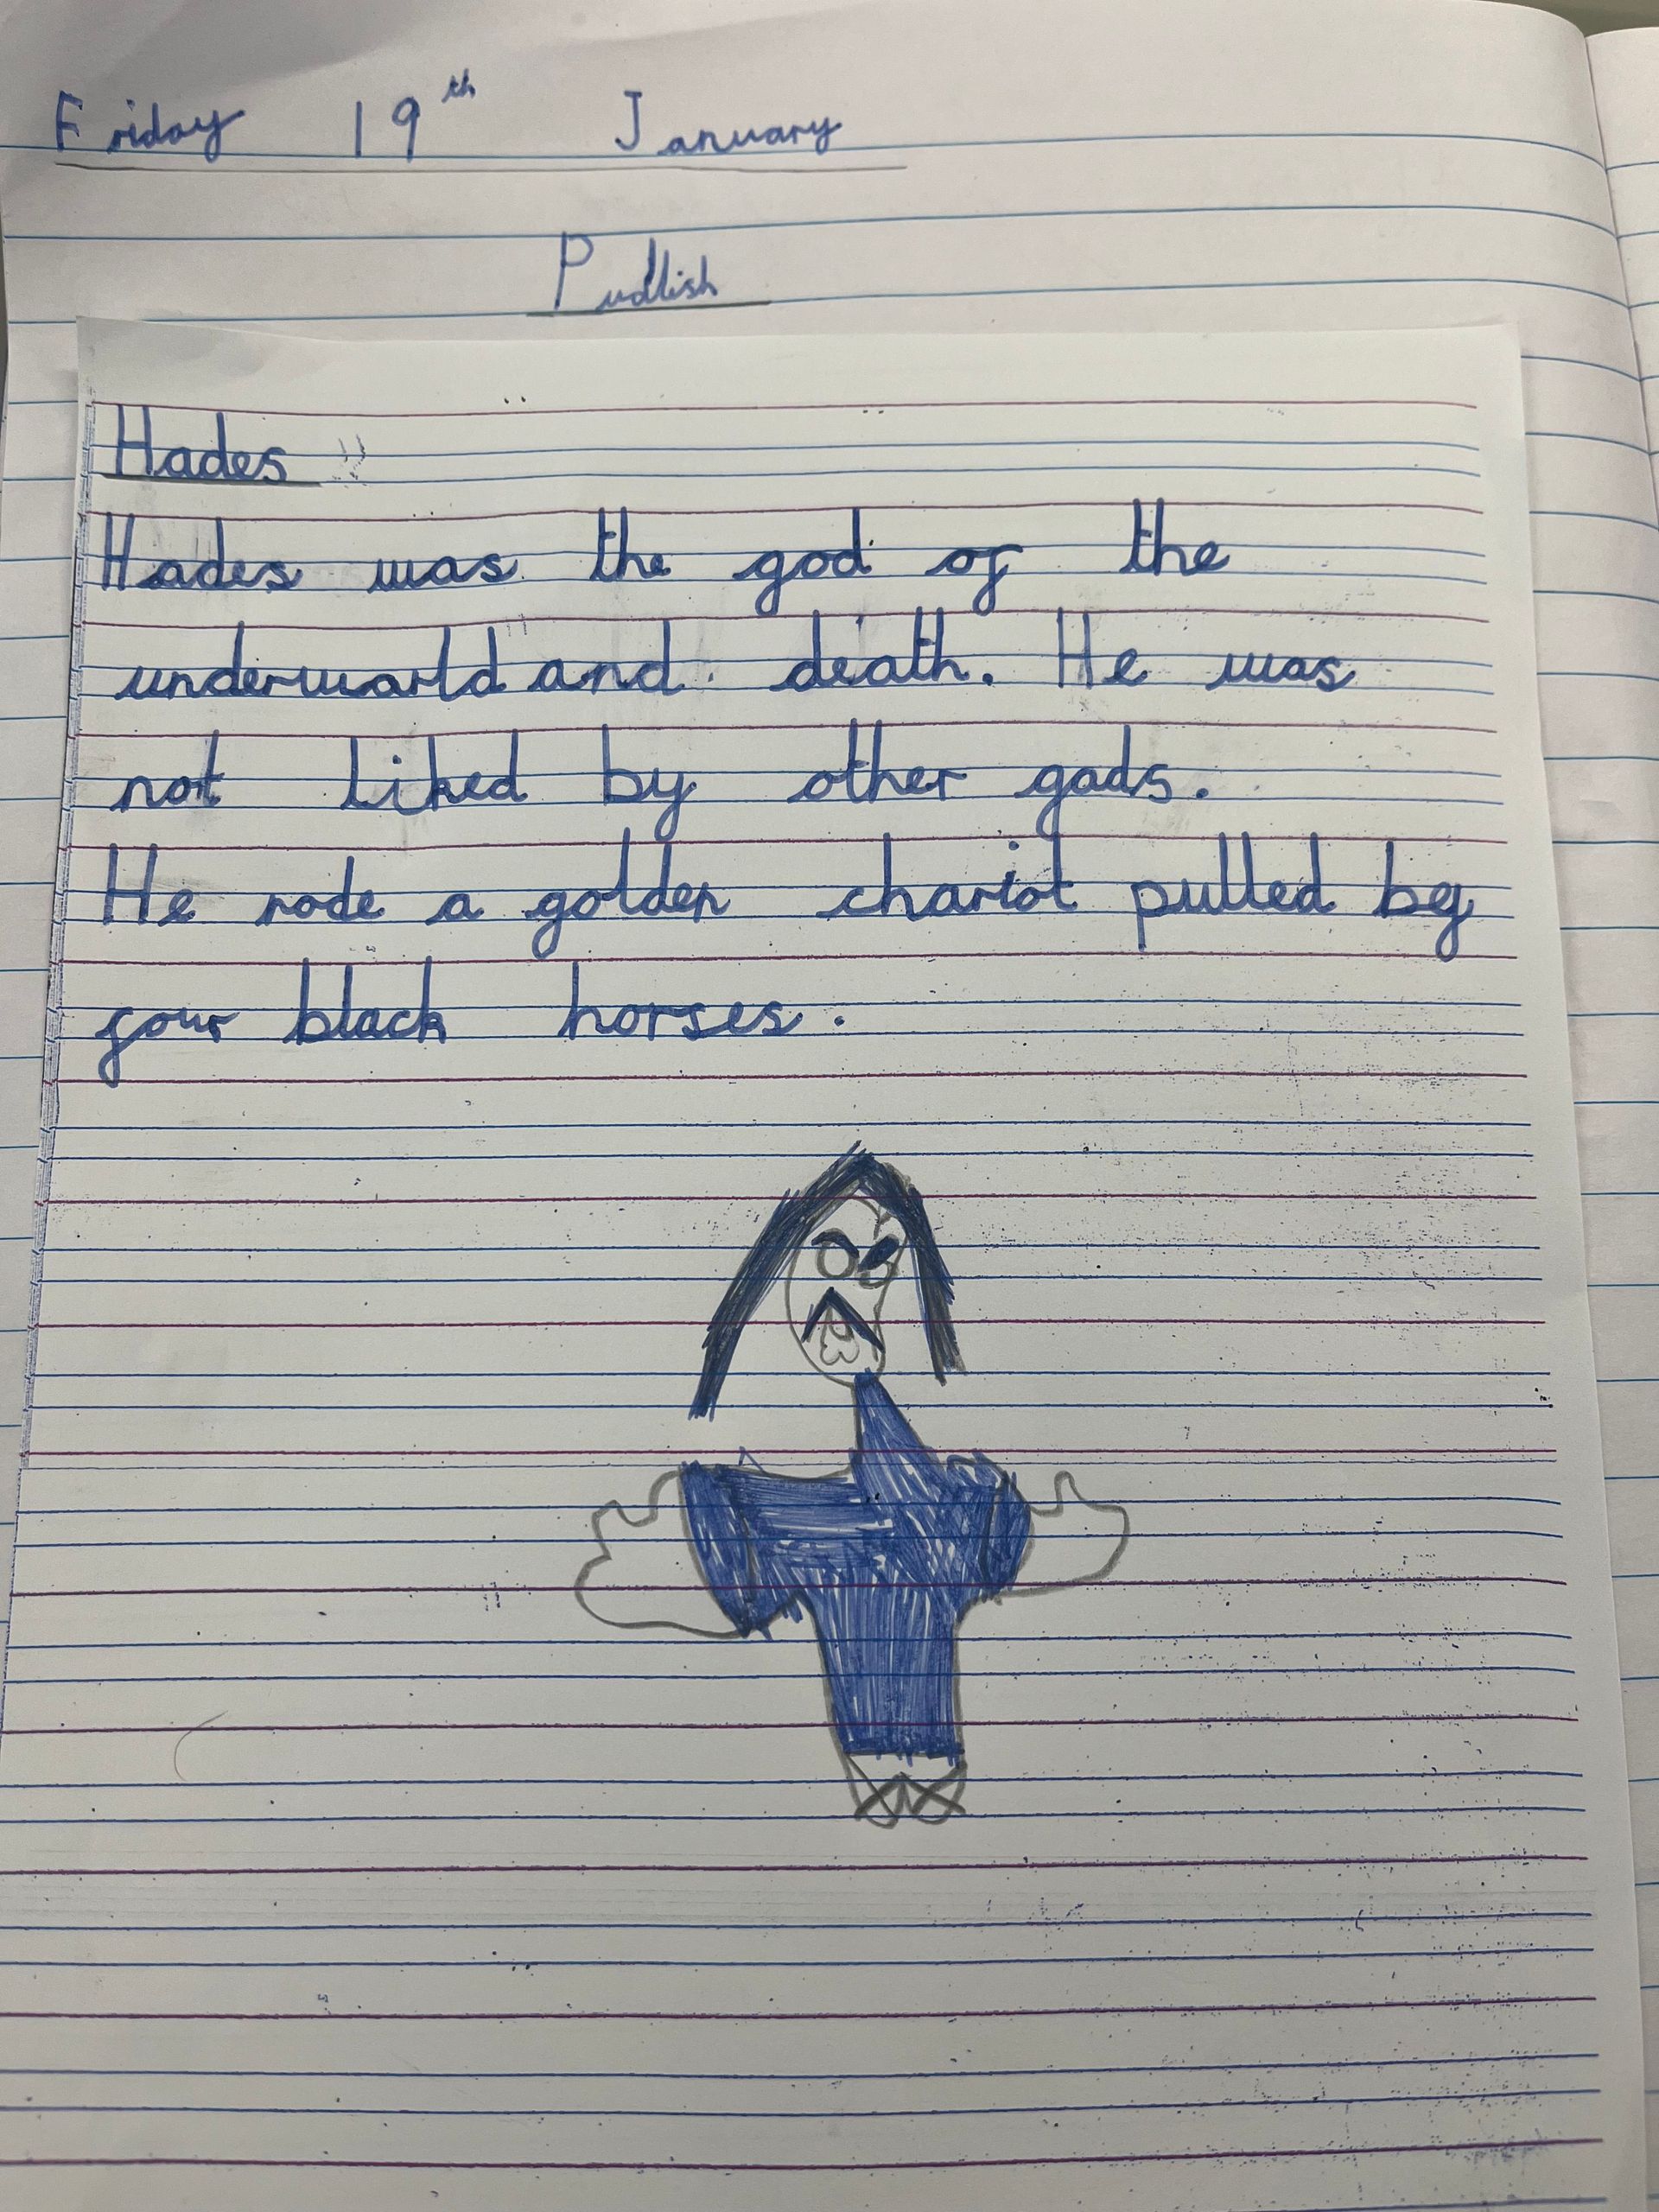 Friday 19th January
Pudlish
Hades
Hades was the god of the
underworld and death. He was
not liked by other gods.
He rode a golden chariot pulled by
four black horses.